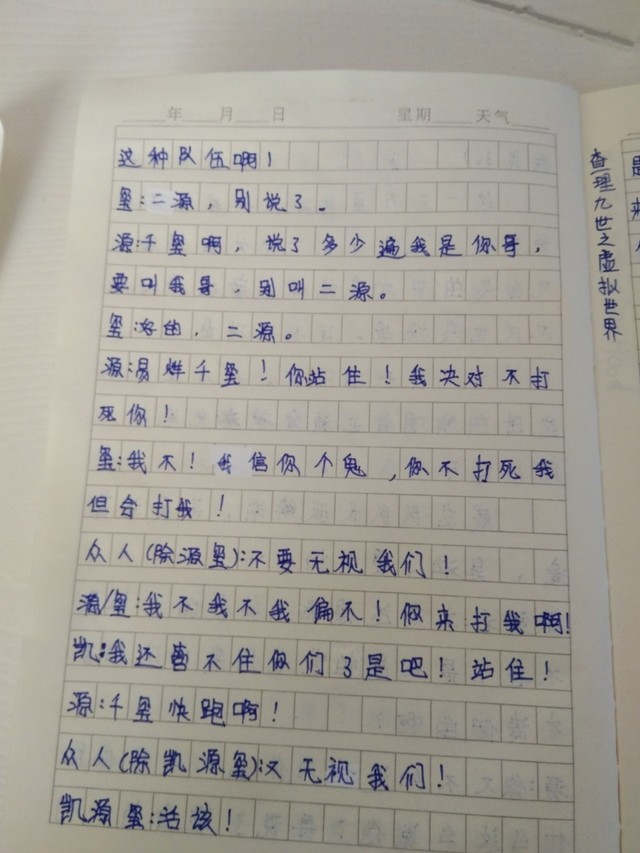 年 月 日 星期 天气
这种队伍啊！
玺:二源，别说了。
源:千玺啊，说了多少遍我是你哥，
要叫我哥，别叫二源。
玺:好的，二源。
源:易烊千玺！你站住！我决对不打
死你！
玺:我不！我信你个鬼，你不打死我
但会打我！
众人(除源玺):不要无视我们！
源/玺:我不我不我偏不！你来打我啊!
凯:我还管不住你们了是吧！站住！
源:千玺快跑啊！
众人(除凯源玺):又无视我们！
凯源玺:活该！
查理九世之虚拟世界